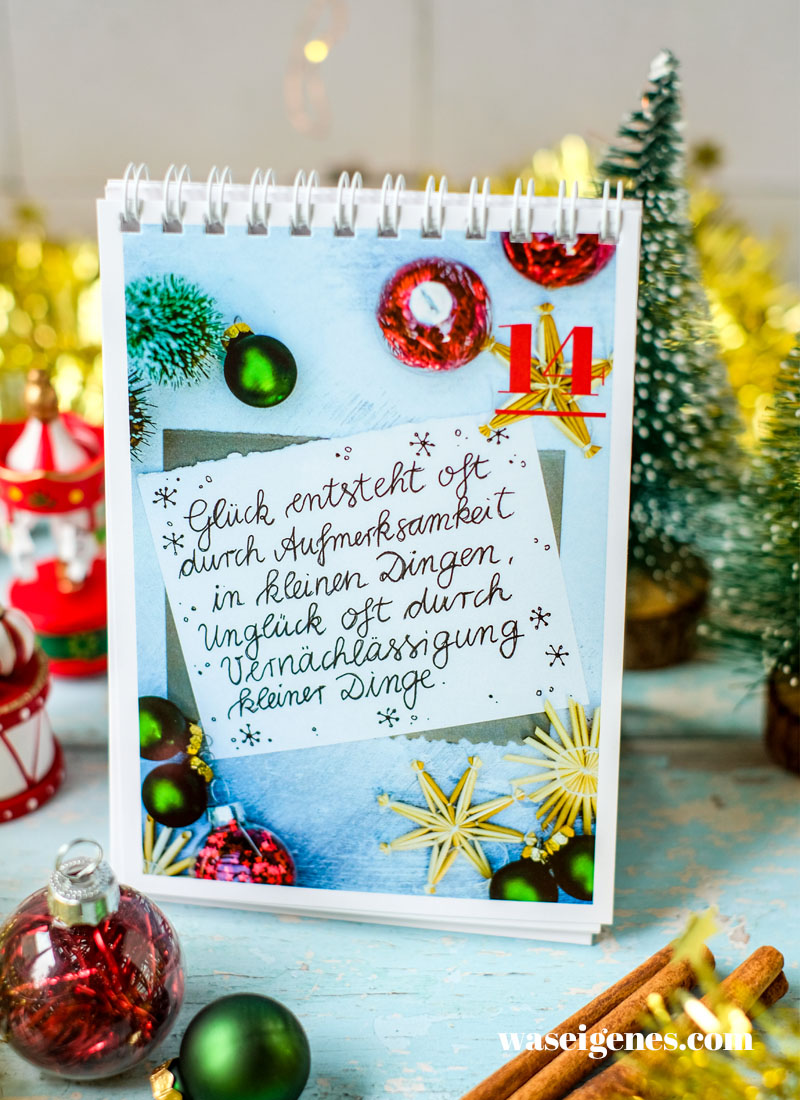 14
Glück entsteht oft
durch Aufmerksamkeit
in kleinen Dingen,
Unglück oft durch
Vernachlässigung
kleiner Dinge.
waseigenes.com